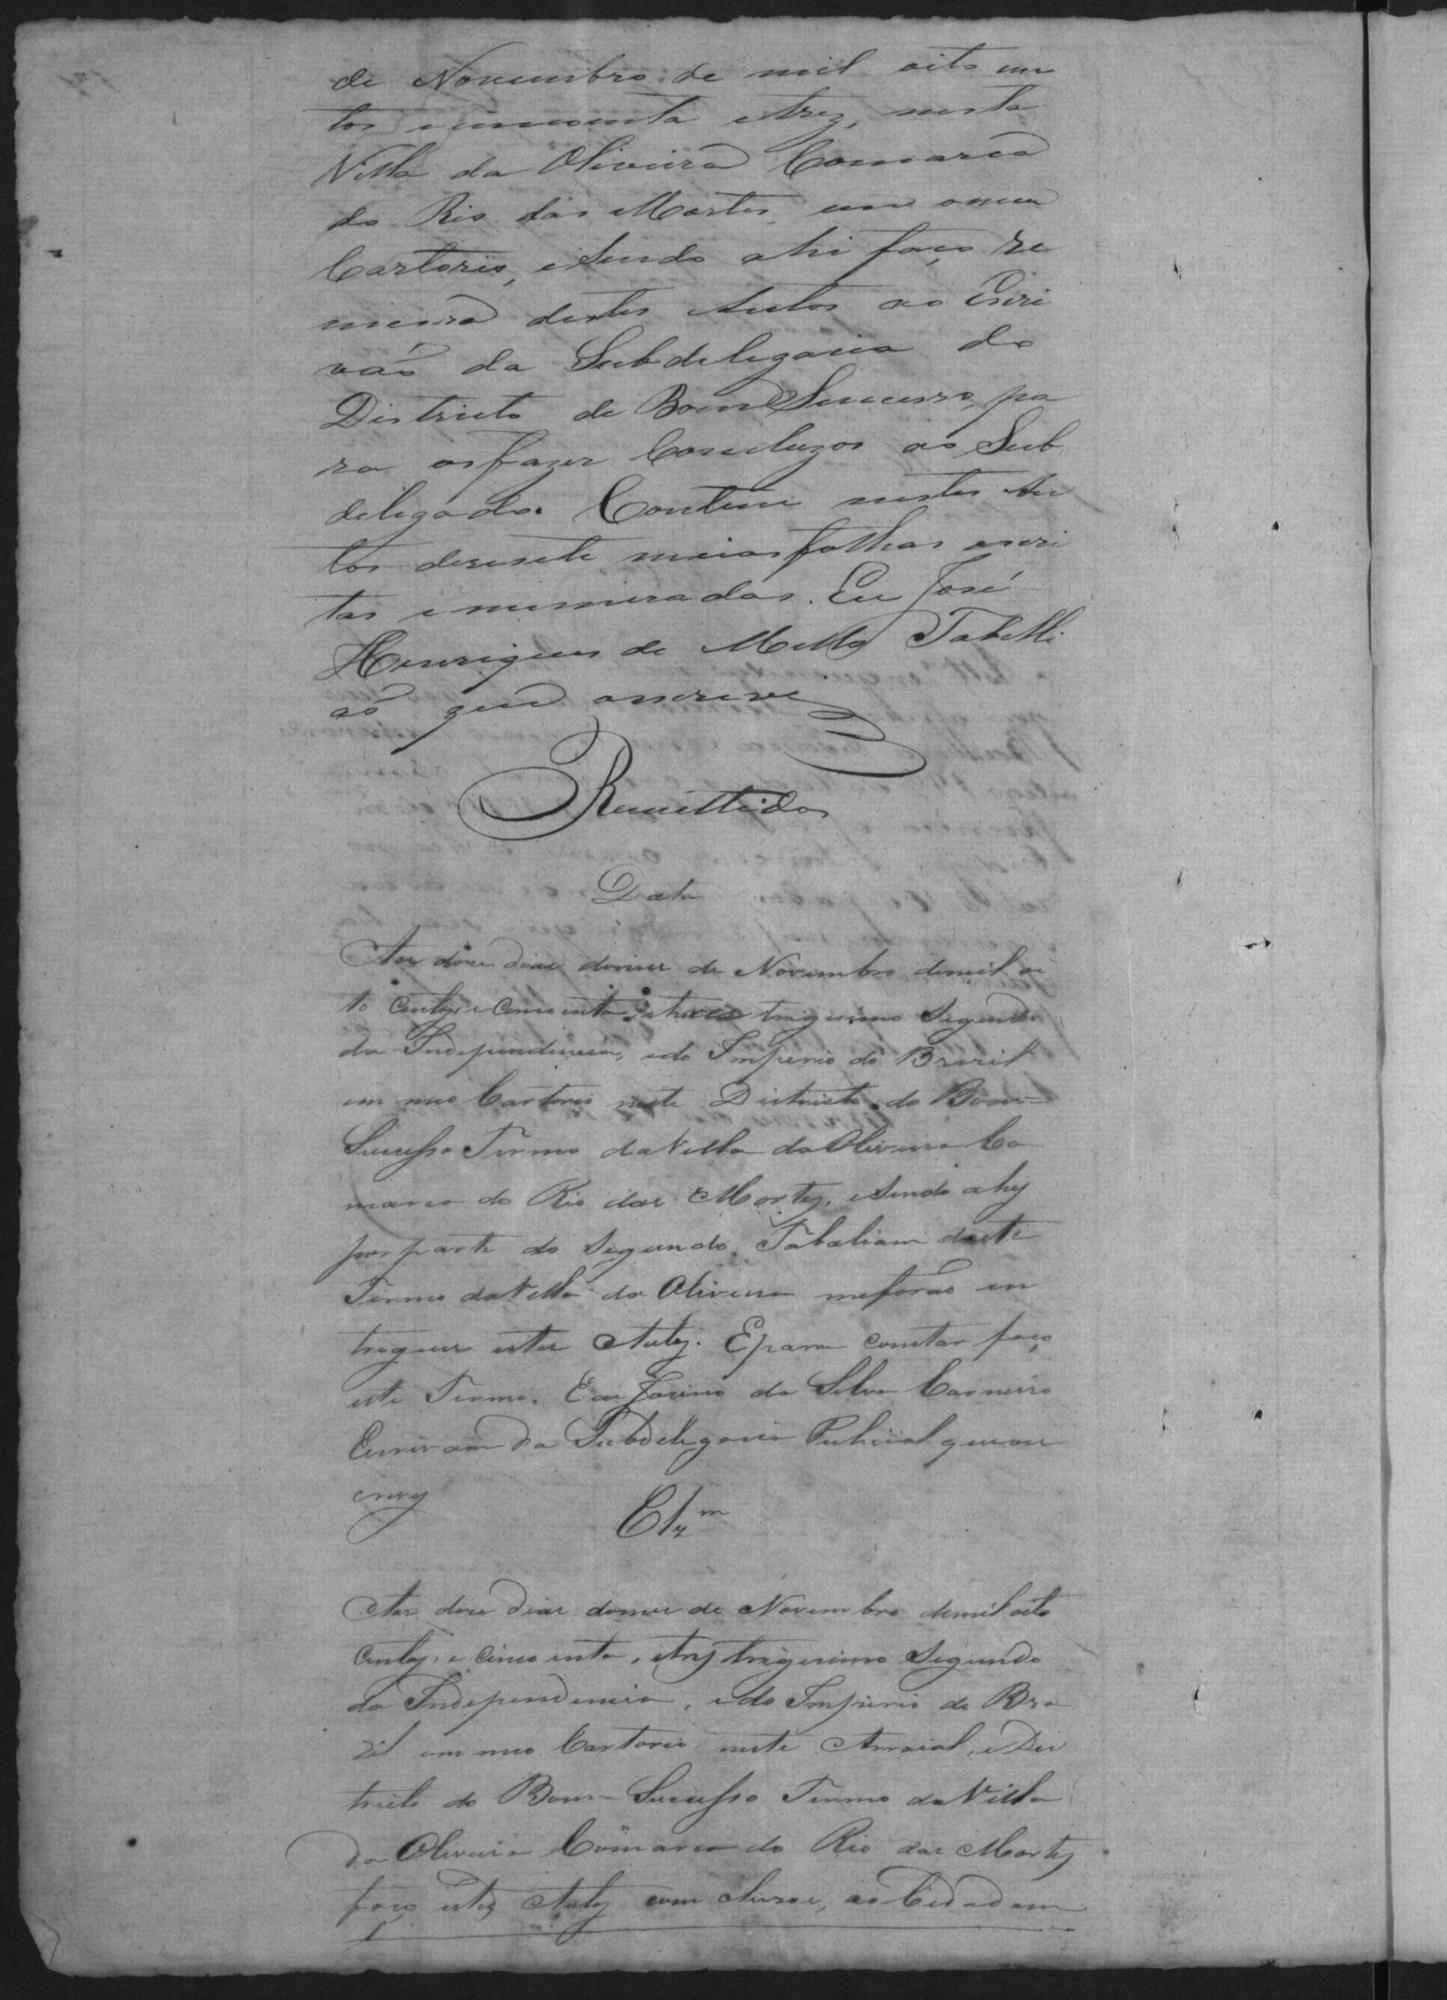 de Novembro de mil oito cen
tos e cincoenta e trez, nesta
Villa da Oliveira Comarca
do Rio das Mortes em o meu
Cartorio, e sendo ahi faço re
messa destes Autos ao Escri
vaõ da Subdelegacia do
Districto de Bom Successo, pa
ra os fazer Concluzos ao Sub
delegado. Contem nestes Au
tos desesete meias folhas escri
tas e numeradas. Eu José
Henriques de Mello Tabelli
aõ que o escrevi
Remettidos
Data
Aos dose dias do mes de Novembro de mil oi
to centos e Cincoenta e tres trigesimo Segundo
da Independencia, e do Imperio do Brazil
em meo Cartorio neste Districto do Bom
Sucesso Termo da Villa da Oliveira Co
marca do Rio das Mortes, e sendo ahy
por parte do Segundo Tabaliam deste
Termo da Villa da Oliveira me foraõ en
tregues estes Autos. E para constar faço
este Termo. Eu da Silva Carneiro
Escrivam da Subdelegacia Pulicial que o es
crevy
Clz.m
Aos dose dias do mes de Novembro de mil oito
centos e Cincoenta, e tres trigesimo Segundo
da Independencia, e do Imperio do Bra
zil em meo Cartorio neste Arraial, e Dis
tricto do Bom Sucesso Termo da Villa
da Oliveira Comarca do Rio das Mortes
faço estes Autos com cluzos, ao Cidadam